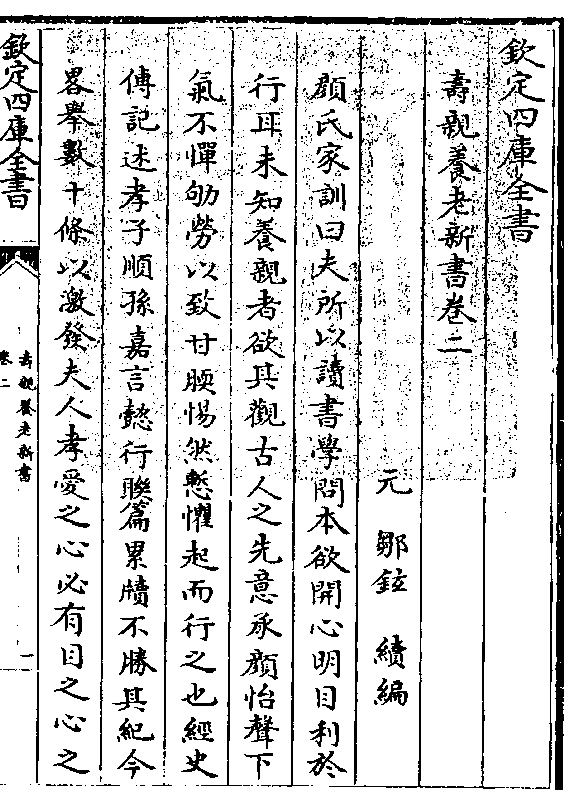 欽定四庫全書
壽親養老新書卷二
元 鄒鉉 續編
顔氏家訓曰夫所以讀書學問本欲開心明目利於
行耳未知養親者欲其觀古人之先意承顔怡聲下
氣不憚劬勞以致甘腝惕然慙懼起而行之也經史
傳記述孝子順孫嘉言懿行聨篇累牘不勝其紀今
畧舉數十條以激發夫人孝愛之心必有目之心之
欽定四庫全書
壽親養老新書
卷二
一